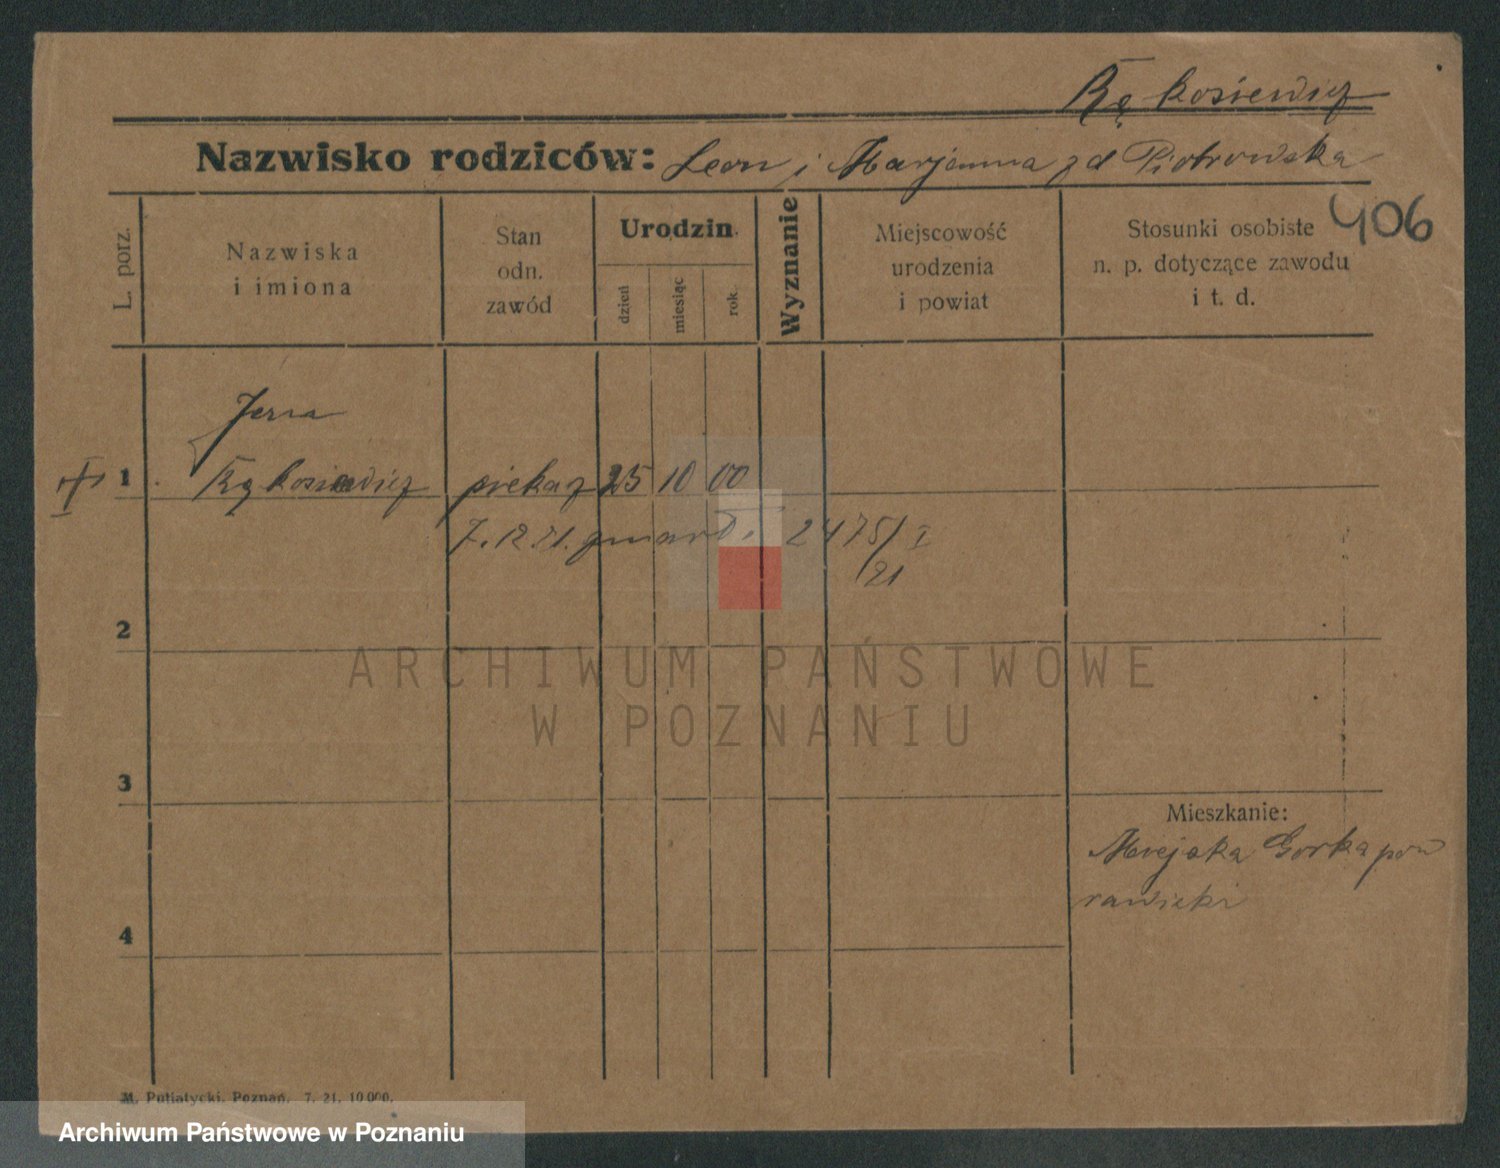 Rękosiewicz
Nazwisko rodziców: Leon i Marjanna zd Piotrowska
406
L. porz.
Nazwiska
i imiona
Stan
odn.
zawód
Urodzin
dzień
miesiąc
rok.
Wyznanie
Miejscowość
urodzenia
i powiat
Stosunki osobiste
n. p. dotyczące zawodu
i t. d.
1
Rękosiewicz piekarz 25 10 00
7.12.21. zmarł. 2475/I
21
2
ARCHIWUM PAŃSTWOWE
W POZNANIU
3
Mieszkanie:
Miejska Gorka pow
rawicki
4
M. Putiatycki, Poznań. 7. 21. 10 000.
Archiwum Państwowe w Poznaniu